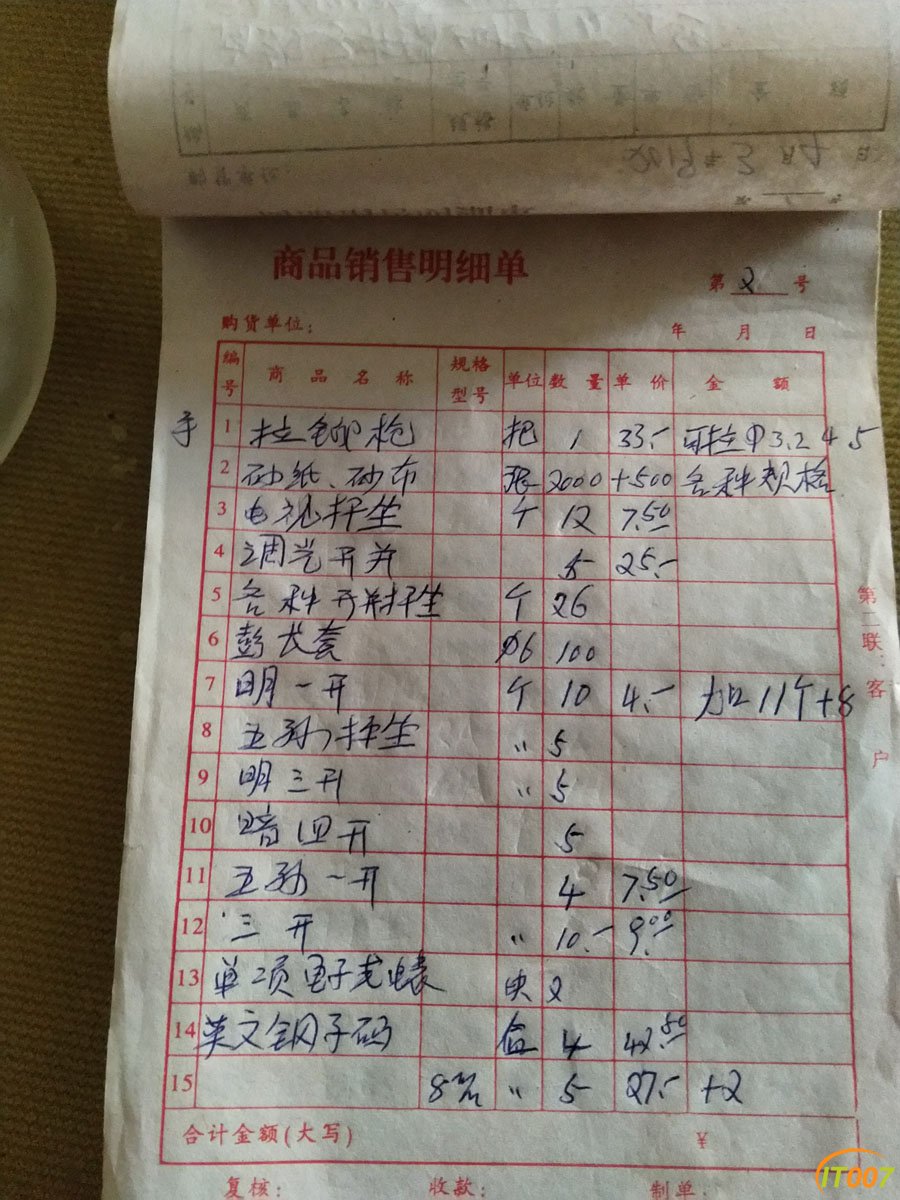 商品销售明细单
第 2 号
购货单位: 年 月 日
编号 商品名称 规格型号 单位 数量 单价 金额
手 1 拉铆枪 把 1 33.- 可拉φ3.2 4 5
2 砂纸、砂布 张 2000 +500 各种规格
3 电视插座 个 12 7.50
4 调光开关 5 25.-
5 各种开关插座 个 26
6 φ6 100
7 明一开 个 10 4.- 加11个+8
8 五孔插座 〃 5
9 明三开 〃 5
10 暗四开 5
11 五孔一开 4 7.50
12 三开 〃 10.- 9.00
13 单项电子 表 块 2
14 英文钢子码 盒 4 42.50
15 8m/m 〃 5 27.- +2
合计金额(大写) ¥
复核: 收款: 制单:
第二联:客户
IT007